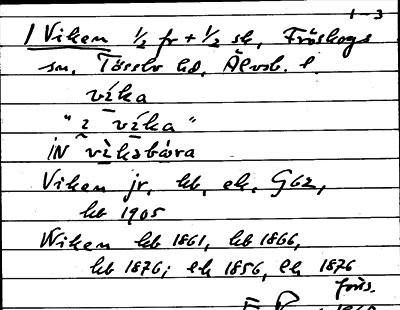 1-3
1 Viken 1/2 fr + 1/2 sk, Fröskogs
sn, Tössbo hd, Älvsb. l.
víka
"i víka"
IN vìkabàra
Viken jr, hb, ek, G62,
hb 1905
Wiken hb 1861, hb 1866,
hb 1876; ek 1856, ek 1876
förs.